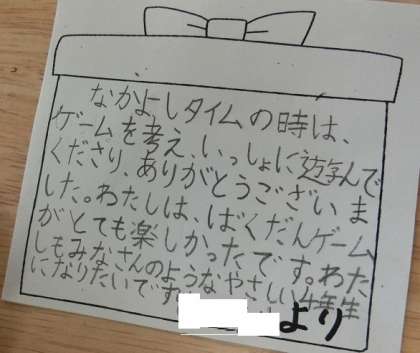 なかよしタイムの時は、
ゲームを考え、いっしょに遊んで
くださり、ありがとうございま
した。わたしは、ばくだんゲーム
がとても楽しかったです。わた
しもみなさんのようなやさしい4年生
になりたいです。
より